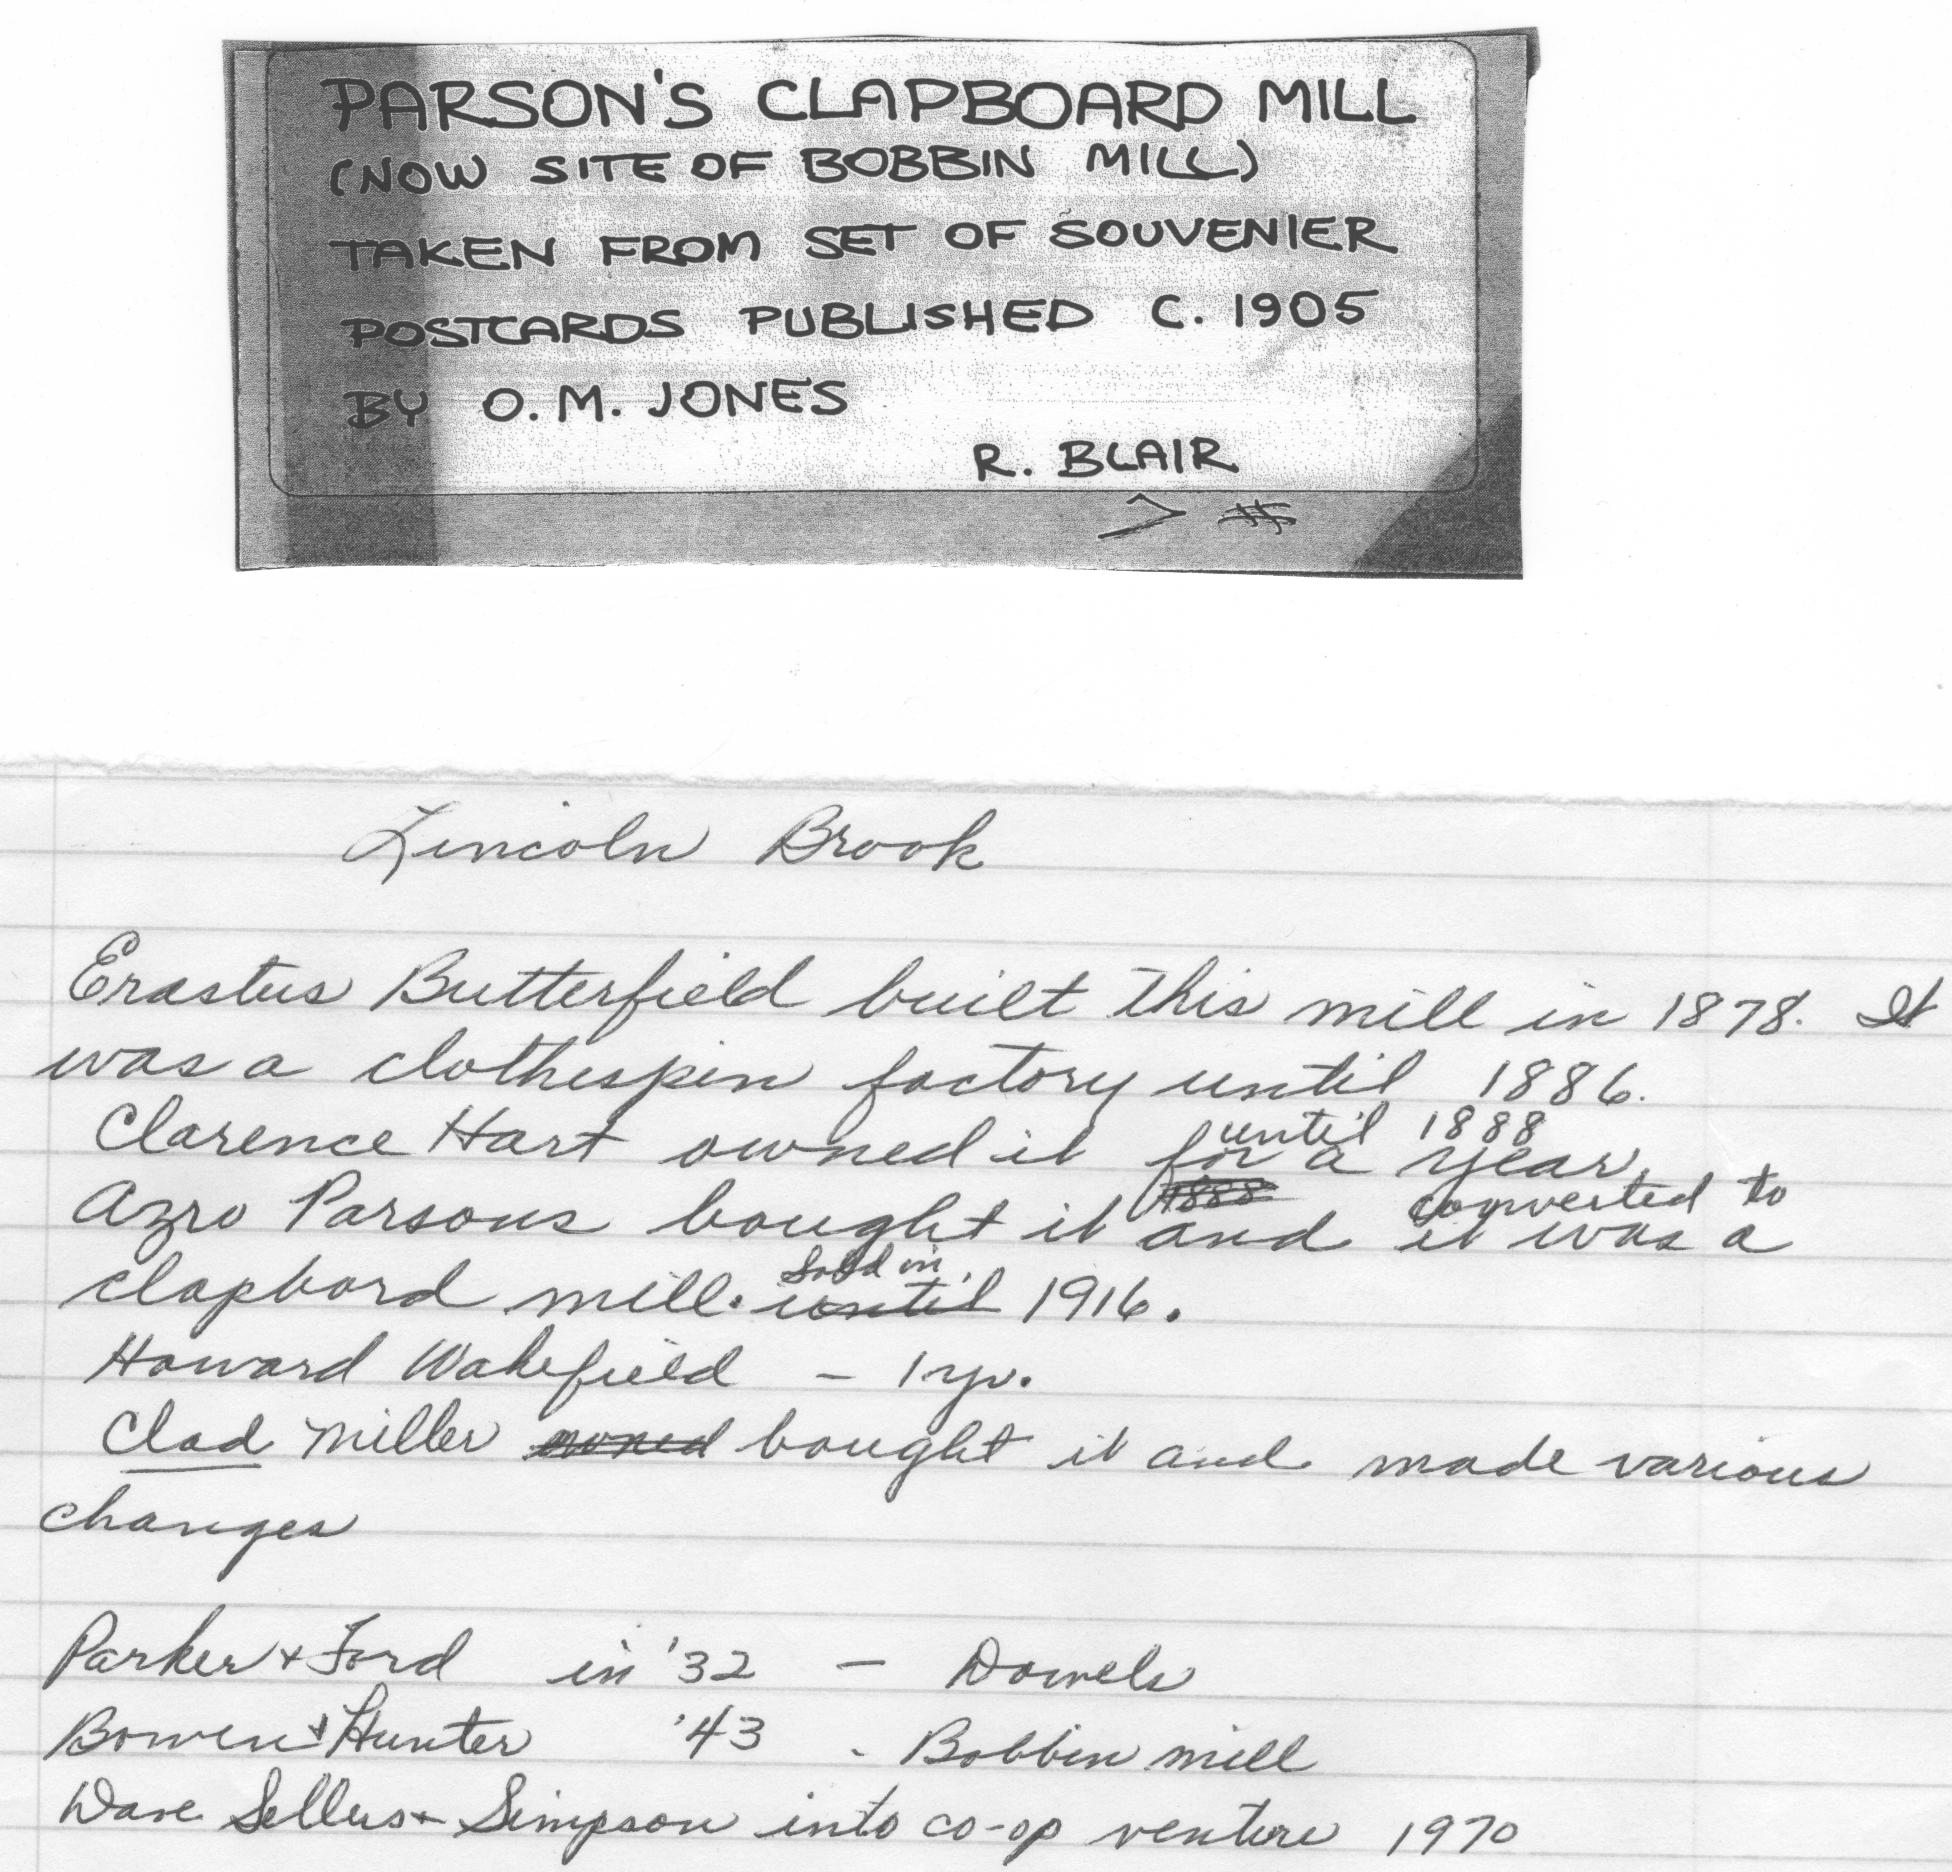 PARSON'S CLAPBOARD MILL
(NOW SITE OF BOBBIN MILL)
TAKEN FROM SET OF SOUVENIER
POSTCARDS PUBLISHED C. 1905
BY O. M. JONES
R. BLAIR
> #
Lincoln Brook
Erastus Butterfield built this mill in 1878. It
was a clothespin factory until 1886.
until 1888
Clarence Hart owned it for a year.
1888 converted to
Azro Parsons bought it and it was a
sold in
clapbord mill. until 1916.
Howard Wakefield - 1 yr.
Clad Miller owned bought it and made various
changes
Parker + Ford in '32 - Dowels
Bowen + Hunter '43 - Bobbin mill
Dave Sellers + Simpson into co-op venture 1970